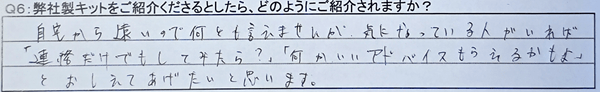 Q6：弊社製キットをご紹介くださるとしたら、どのようにご紹介されますか？
自宅から遠いので何とも言えませんが、気になっている人がいれば
「連絡だけでもしてみたら？」「何かいいアドバイスもらえるかもよ」
とおしえてあげたいと思います。